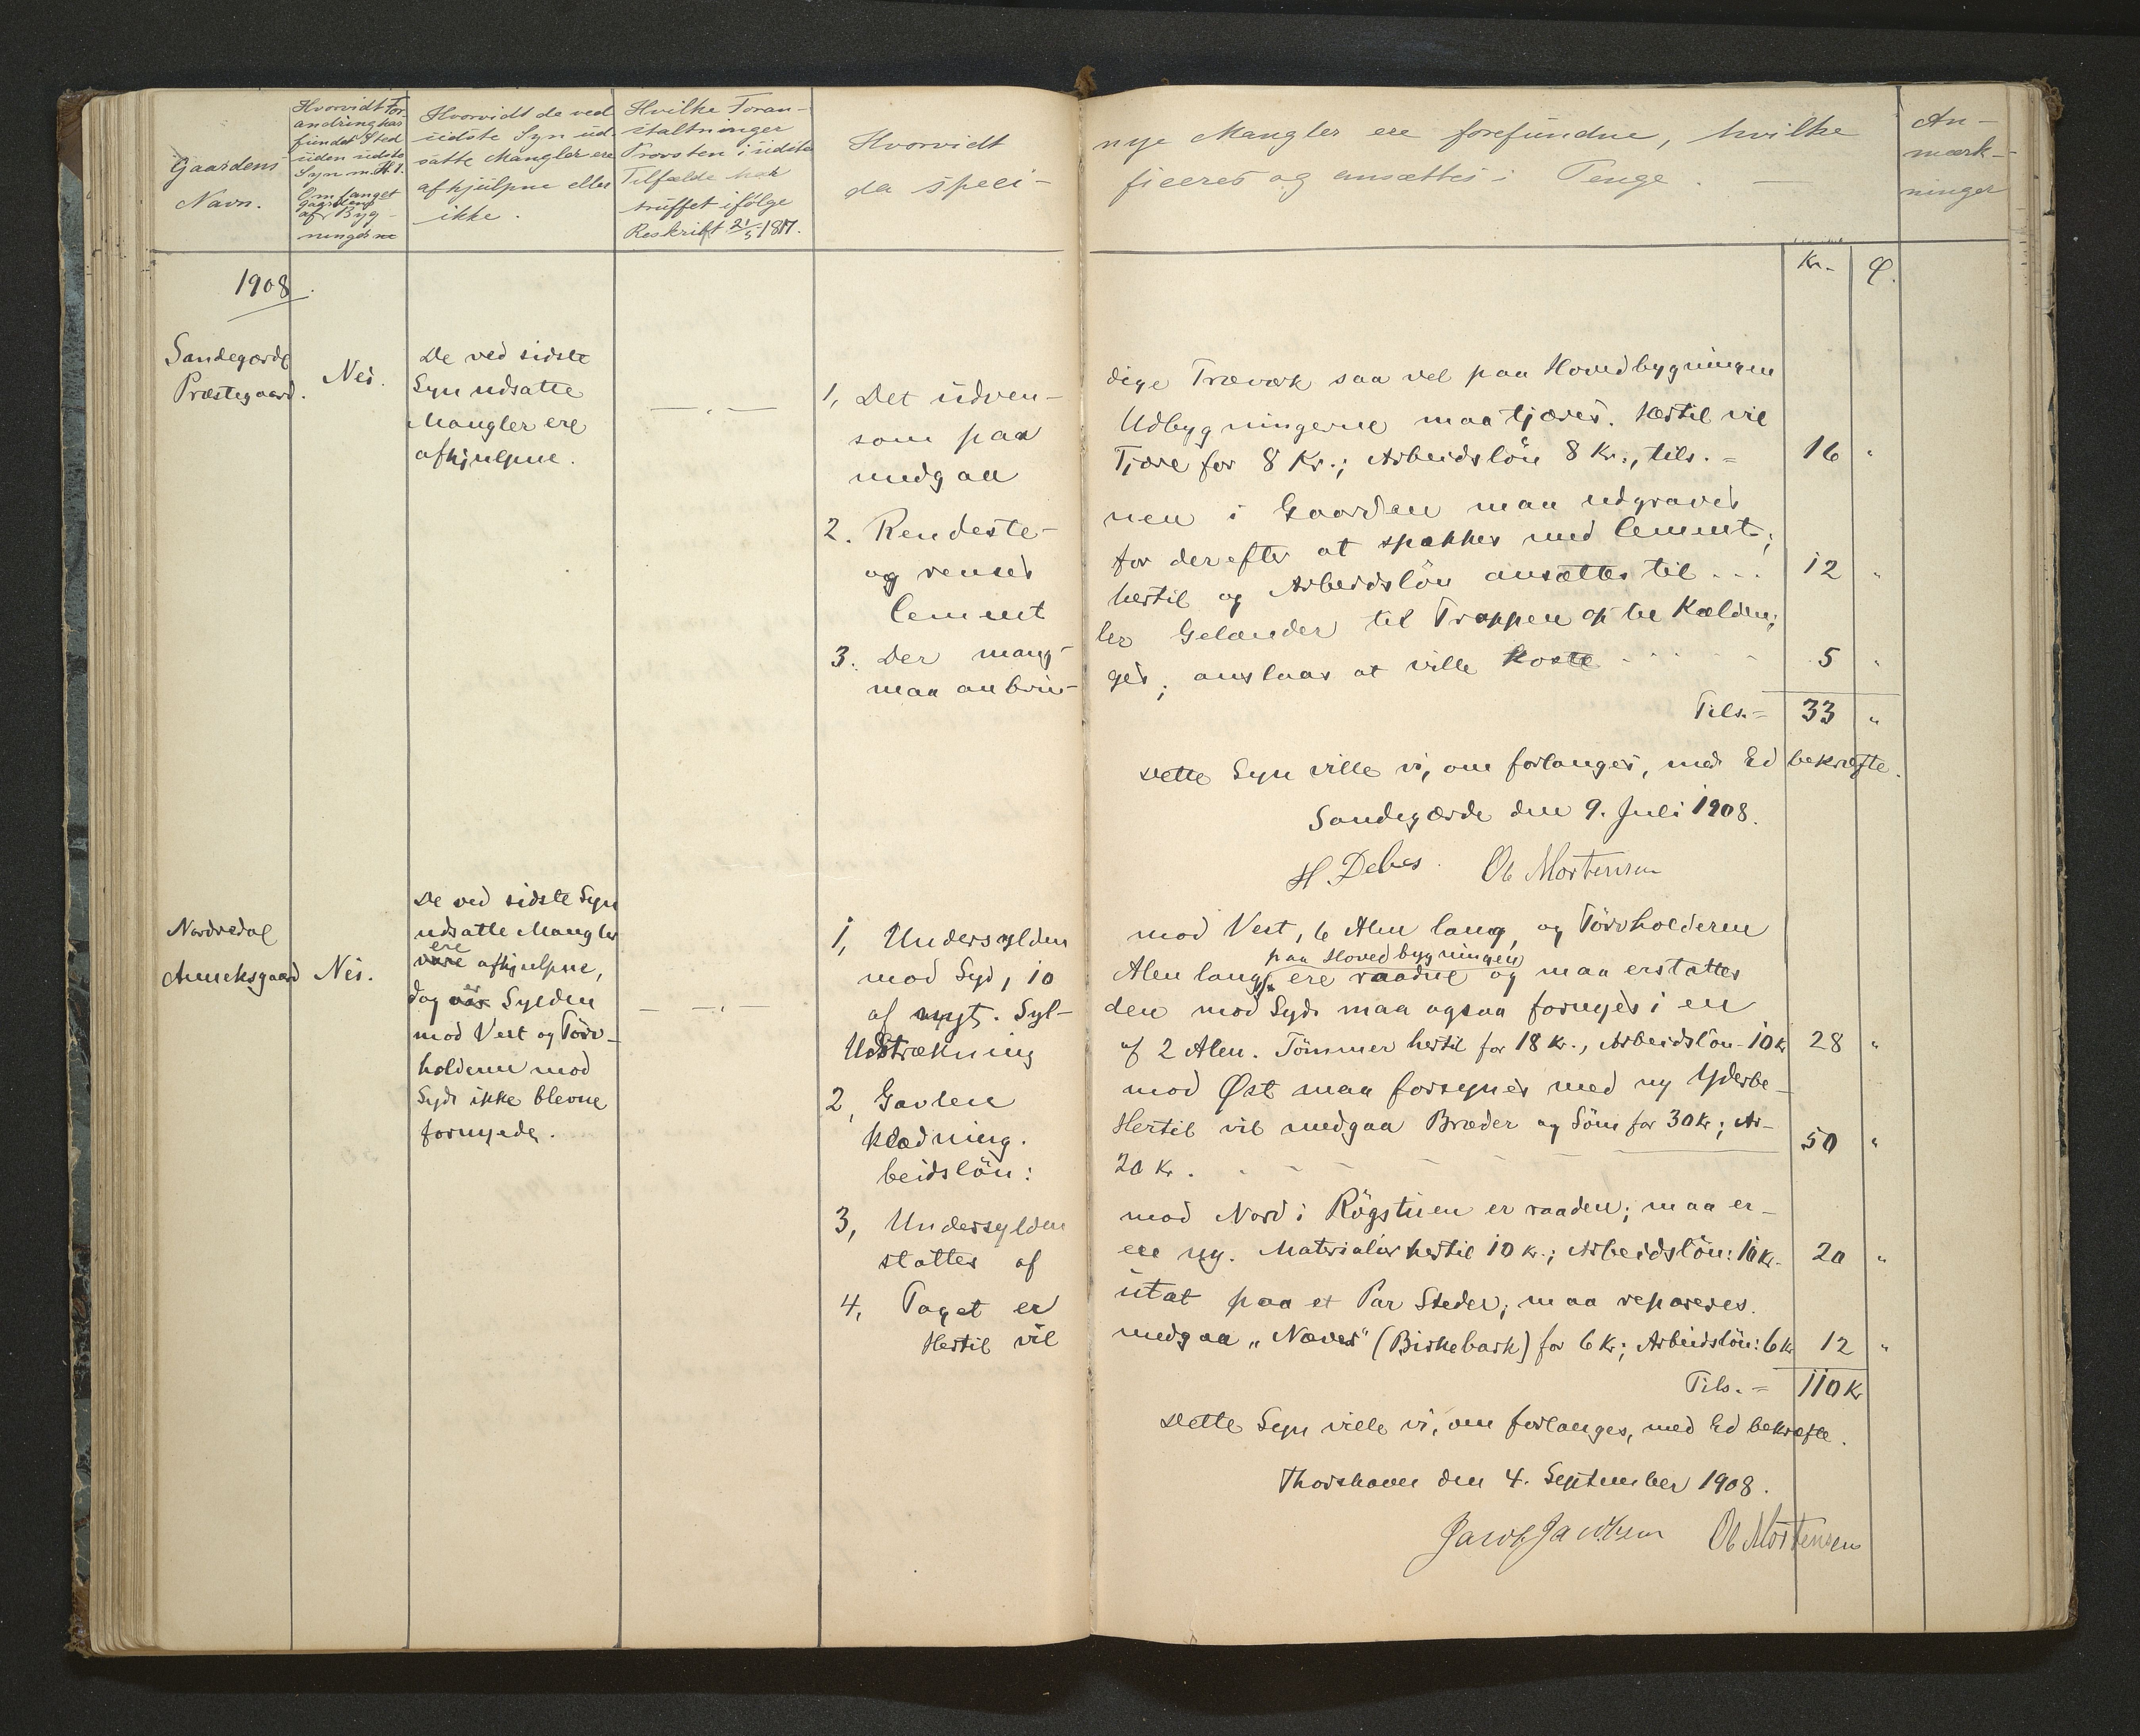 Gaardens
Navn.
Hvorvidt For-
andring har
fundet Sted
siden sidste
Syn m. H. t.
Omfanget
af Gaardens
Byg-
ningerne
Hvorvidt de ved
sidste Syn ud-
satte Mangler ere
afhjulpne eller
ikke.
Hvilke Foran-
staltninger
Provsten i sidste
Tilfælde har
truffet ifølge
Reskript 21/5 1817.
Hvorvidt nye Mangler ere forefundne, hvilke
da speci- ficeres og ansættes i Penge.
An-
mærk-
ninger
Kr. Ø.
1908.
Sandegærde
Præstegaard.
Nei.
De ved sidste
Syn udsatte
Mangler ere
afhjulpne.
1, Det udven- dige Træværk saa vel paa Hovedbygningen
som paa Udbygningerne maa tjæres. Hertil vil
medgaa Tjære for 8 Kr.; Arbeidslön 8 Kr., tils. = 16 "
2. Rendeste- nen i Gaarden maa udgraves
og renses for derefter at spækkes med Cement;
Cement hertil og Arbeidslön ansættes til... 12 "
3. Der mang- ler Gelænder til Trappen op til Kælderen;
maa anbrin- ges; anslaas at ville koste 5 "
Tils. = 33 "
Dette Syn ville vi, om forlanges, med Ed bekræfte.
Sandegærde den 9. Juli 1908.
H. Debes. Ol Mortensen
Nordredal
Anneksgaard
Nei.
De ved sidste Syn
udsatte Mangler
ere
vare afhjulpne,
dog er Sylden
mod Vest og Törv-
holderen mod
Syd ikke blevne
fornyede.
1, Undersylden mod Vest, 6 Alen lang, og Törvholderen
paa Hovedbygningen
mod Syd, 10 Alen lang, ere raadne og maa erstattes
af nyt. Syl- den mod Syd maa ogsaa fornyes i en
Udstrækning af 2 Alen. Tömmer hertil for 18 Kr., Arbeidslön 10 Kr 28 "
2, Gavlen mod Øst maa forsynes med ny Yderbe-
klædning. Hertil vil medgaa Bræder og Söm for 30 Kr; Ar-
beidslön: 20 Kr. 50 "
3, Undersylden mod Nord i Rögstuen er raaden; maa er-
stattes af en ny. Materialier hertil 10 Kr.; Arbeidslön: 10 Kr. 20 "
4, Taget er utæt paa et Par Steder; maa repareres.
Hertil vil medgaa "Næver" (Birkebark) for 6 Kr; Arbeidslön: 6 Kr 12 "
Tils. = 110 Kr
Dette Syn ville vi, om forlanges, med Ed bekræfte.
Thorshavn den 4. September 1908.
Jacob Jacobsen Ol Mortensen